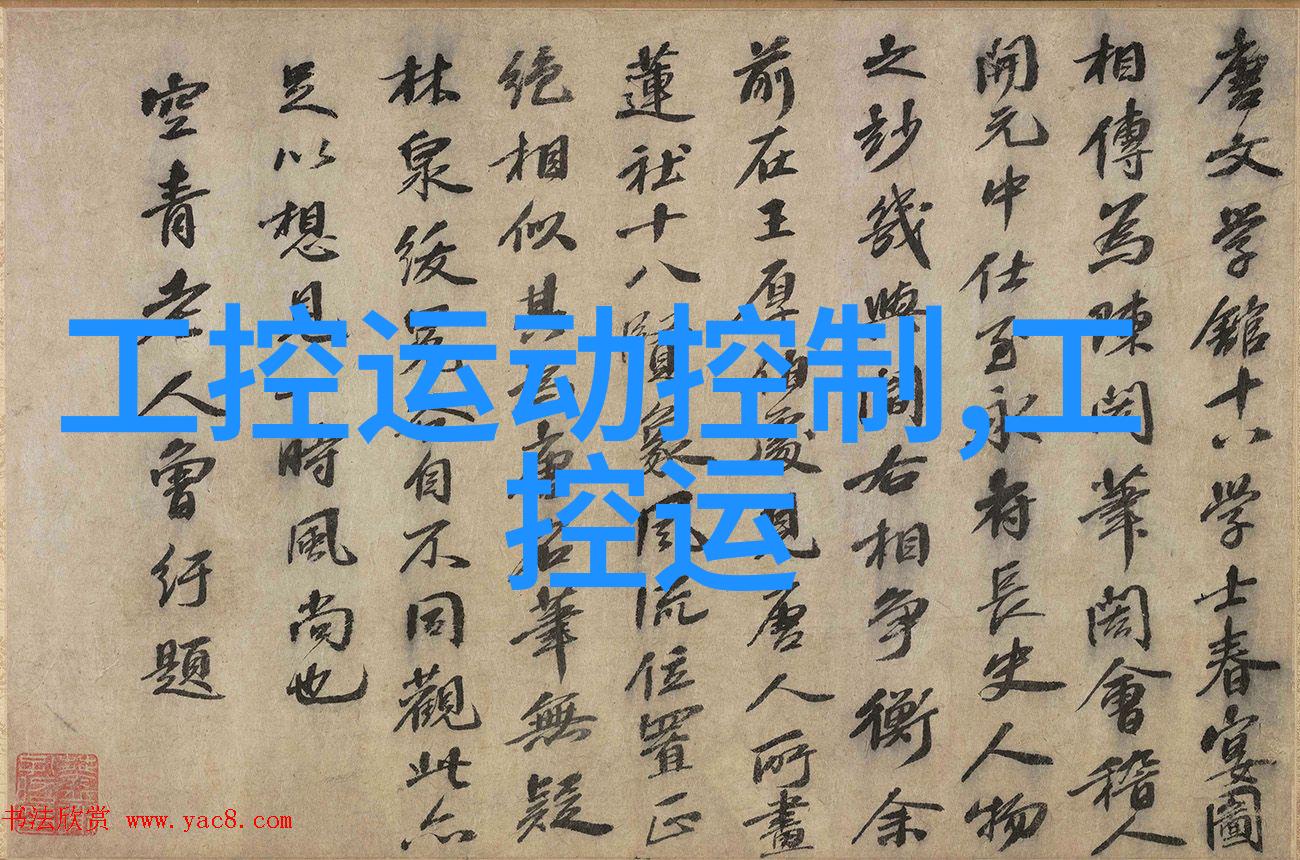 唐文学館十八学士春宴圖
相傳為陳闳筆闳會稽人
開元中仕至永府長史人物
之妙幾與閻右相争衡余
前在王厚伯處見唐人所畫
蓮社十八賢象風流位置正
絶相似其筆無疑
林泉綬冕自不同觀此亦
足以想見一時風尚也
空青老人曾紆題
工控运动控制,工
控运
书法欣赏 www.yac8.com